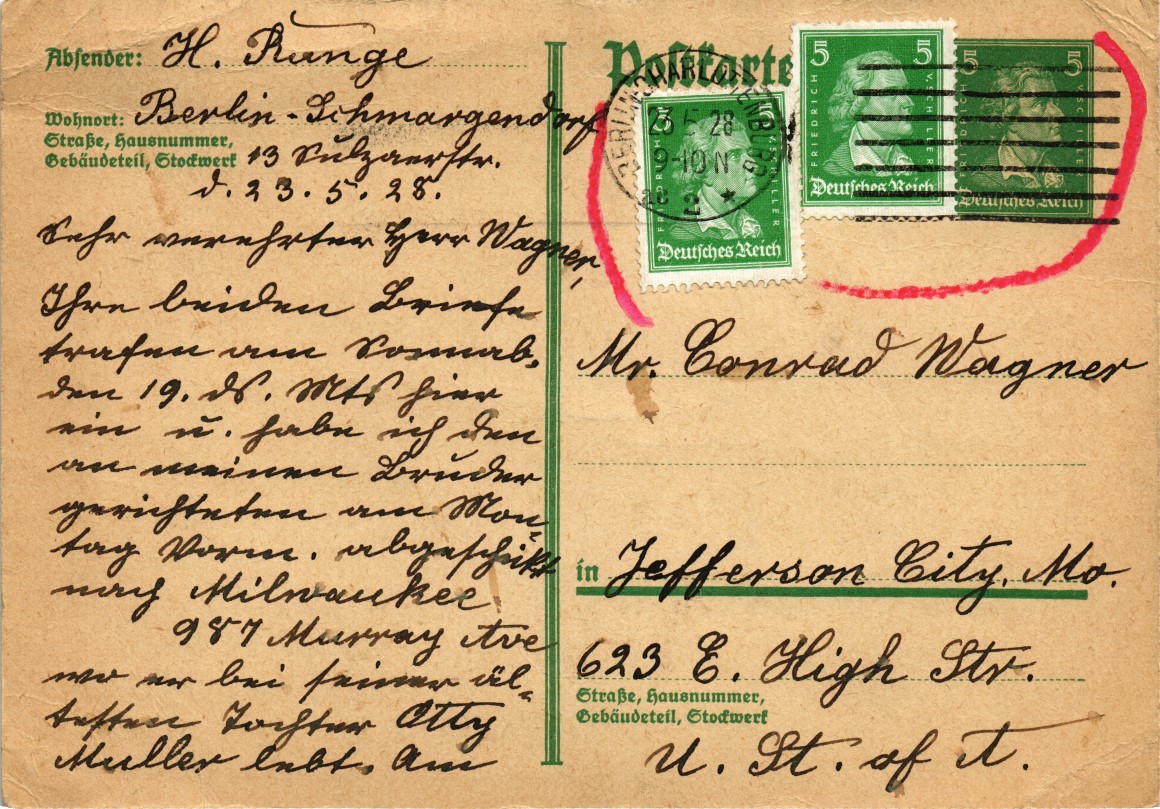 Absender: H. Runge
Wohnort: Berlin-Schmargendorf
Straße, Hausnummer,
Gebäudeteil, Stockwerk 13 Sulzaerstr.
d. 23.5.28.
Sehr verehrter Herr Wagner,
Ihre beiden Briefe
trafen am Sonnab.
den 19. ds. Mts hier
ein u. habe ich den
an meinen Bruder
gerichteten am Mon-
tag Vorm. abgeschickt
nach Milwaukee
987 Murray Ave
wo er bei seiner äl-
testen Tochter Otty
Muller lebt. Am
Postkarte
BERLIN-CHARLOTTENBURG
23.5.28
9-10 N
2 *
5 5
FRIEDRICH V. SCHILLER
Deutsches Reich
5 5
FRIEDRICH V. SCHILLER
Deutsches Reich
5 5
FRIEDRICH V. SCHILLER
Deutsches Reich
Mr. Conrad Wagner
in Jefferson City, Mo.
623 E. High Str.
Straße, Hausnummer,
Gebäudeteil, Stockwerk
U. St. of A.